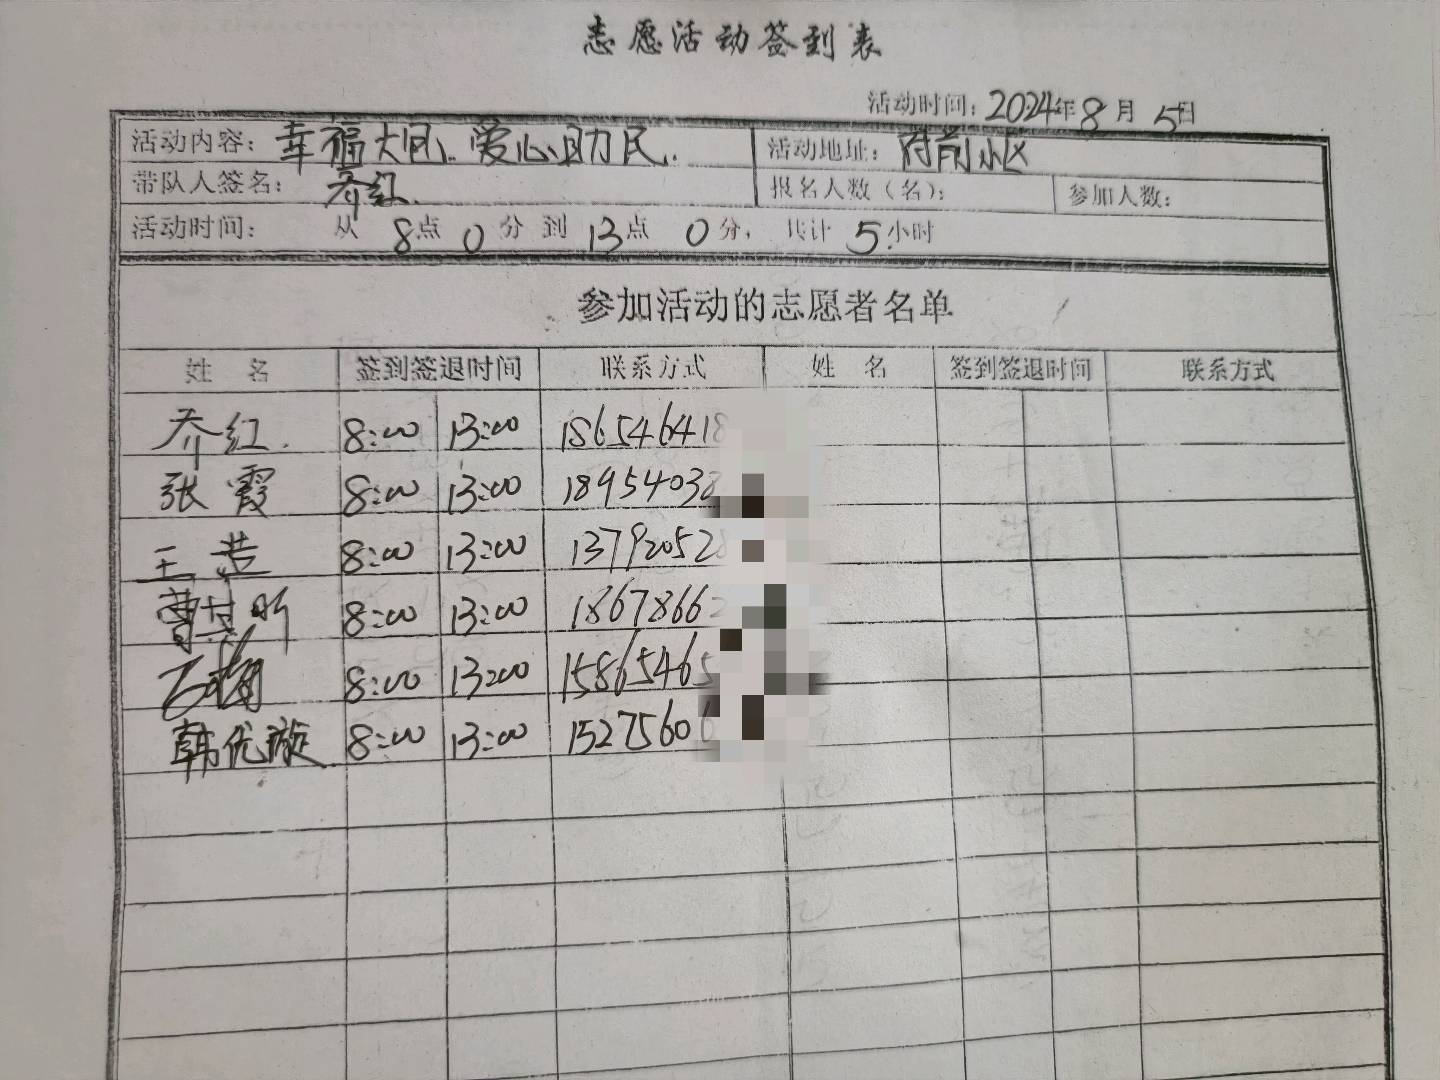 志愿活动签到表
活动时间：2024年8月5日
活动内容：幸福大团、爱心助民. 活动地址：府前小区
带队人签名：乔红. 报名人数（名）： 参加人数：
活动时间： 从 8点 0分 到 13点 0分， 共计 5小时
参加活动的志愿者名单
姓 名 签到签退时间 联系方式 姓 名 签到签退时间 联系方式
乔红. 8:00 13:00 186546418
张霞 8:00 13:00 18954038
王 8:00 13:00 13792052
曹 8:00 13:00 18678662
8:00 13:00 15865465
韩优璇 8:00 13:00 15275606